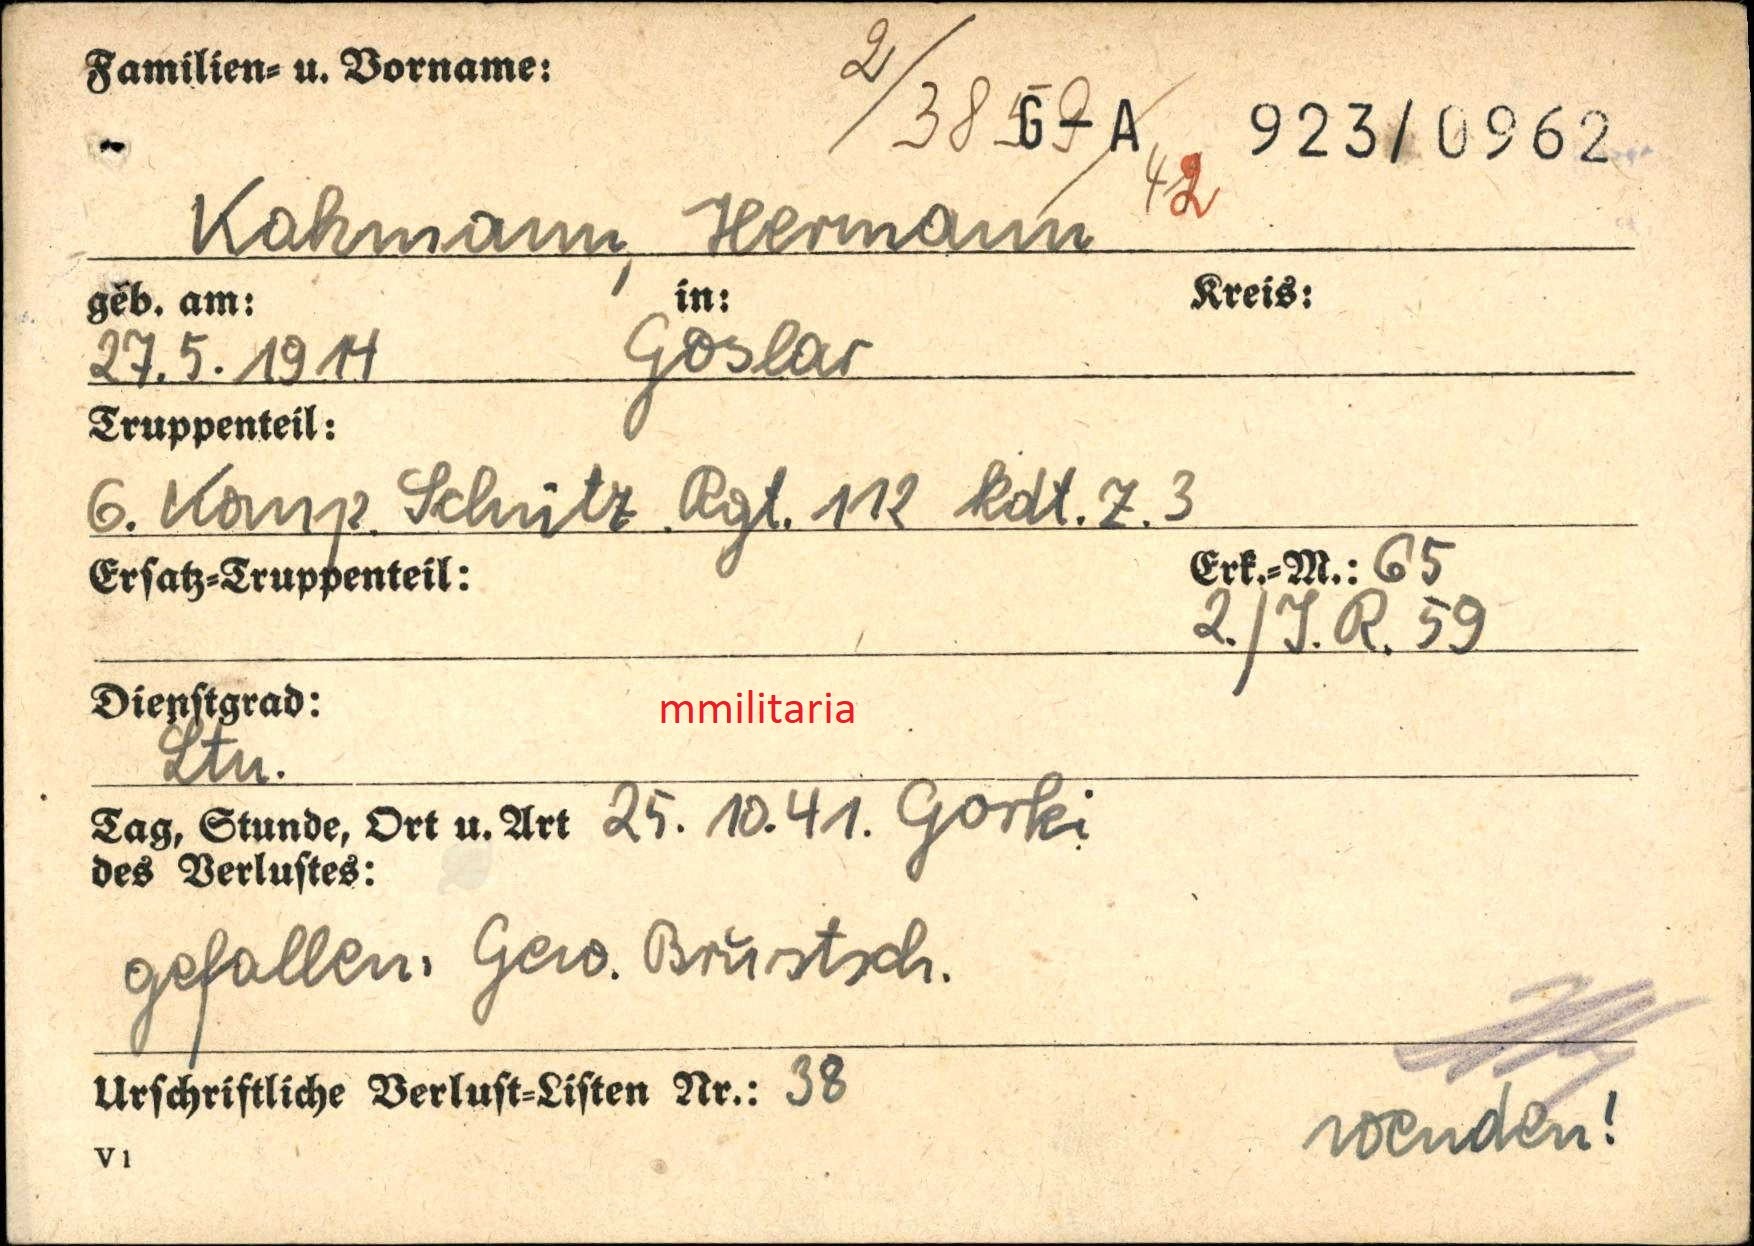 Familien- u. Vorname:
2/3859
G-A 923/0962
42
Kahmann, Hermann
geb. am: in: Kreis:
27.5.1914 Goslar
Truppenteil:
6. Komp. Schütz. Rgt. 112 kdt. z. 3
Ersatz-Truppenteil: Erk.-M.: 65
2./J.R. 59
Dienstgrad:
mmilitaria
Ltn.
Tag, Stunde, Ort u. Art 25.10.41. Gorki
des Verlustes:
gefallen. Gew. Brustsch.
Urschriftliche Verlust-Listen Nr.: 38
wenden!
V 1